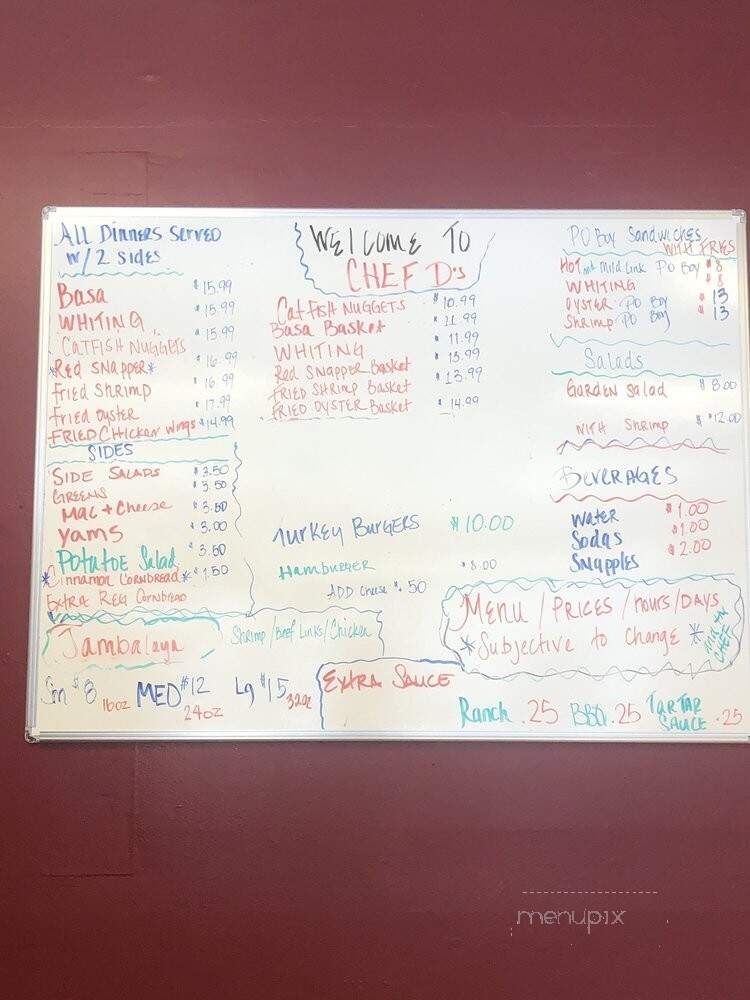 ALL DINNERS SERVED
W/2 SIDES
Basa $15.99
WHITING $15.99
CATFISH NUGGETS $15.99
*Red SNAPPER* $16.99
Fried Shrimp $16.99
Fried Oyster $17.99
FRIED CHICKEN WINGS $14.99
SIDES
SIDE SALADS $3.50
GREENS $3.50
MAC + Cheese $3.50
YAMS $3.00
POTATOE Salad $3.50
*Cinnamon CORNBREAD* $1.50
EXTRA REG CORNBREAD
Jambalaya
Shrimp/Beef Links/Chicken
Sm $8 16oz MED $12 24oz Lg $15 32oz
WELCOME TO
CHEF D's
CatFISH NUGGETS $10.99
Basa Basket $11.99
WHITING $11.99
Red SNAPPER Basket $13.99
FRIED SHRIMP Basket $13.99
FRIED OYSTER Basket $14.99
Turkey BURGERS $10.00
HamburGER $8.00
ADD cheese $.50
EXTRA SAUCE
Ranch .25 BBQ .25 TARTAR SAUCE .25
PO Boy Sandwiches
WITH FRIES
HOT Mild Link PO Boy $8
WHITING $8
OYSTER PO Boy $13
Shrimp PO Boy $13
Salads
GARDEN Salad $8.00
WITH Shrimp $12.00
BEVERAGES
WATER $1.00
Sodas $1.00
SNAPPLES $2.00
MENU/PRICES/HOURS/DAYS
*Subjective to Change*
CHEF
menupix